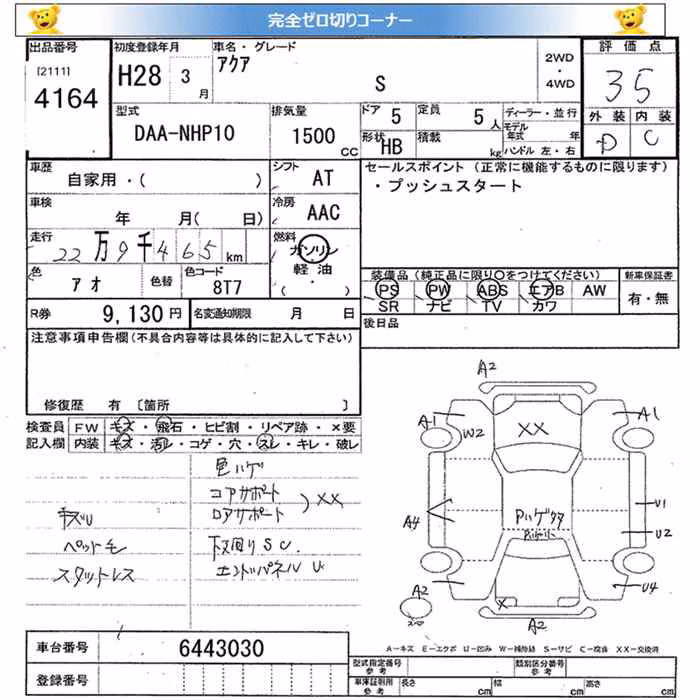 完全ゼロ切りコーナー
出品番号 初度登録年月 車名・グレード 評価点
[2111] アクア 2WD
4164 H28 3月 S ・4WD 35
型式 排気量 ドア 5 定員 5人 ディーラー・並行 外装 内装
DAA-NHP10 1500CC 形状 HB 積載 kg モデル年式 年 D C
ハンドル 左・右
車歴 シフト セールスポイント (正常に機能するものに限ります)
自家用・( ) AT ・プッシュスタート
車検 冷房
年 月( 日) AAC
走行 燃料
22万9千465km ガソリン
色 色替 色コード 軽油 装備品 (純正品に限り○をつけてください) 新車保証書
アオ 8T7 (・) PS PW ABS エアB AW 有・無
SR ナビ TV カワ
R券 9,130円 名変通知期限 月 日 後日品
注意事項申告欄 (不具合内容等は具体的に記入して下さい)
修復歴 有 〔箇所 〕
検査員 FW キズ・飛石・ヒビ割・リペア跡・×要
記入欄 内装 キズ・汚レ・コゲ・穴・スレ・キレ・破レ
色ハゲ
コアサポート
ロアサポート ) XX
キズU
ペットモ 下回りSC
スタットレス エンドパネルU
A2
A1 A1
W2 XX
A4 U1
U2
A2 U4
X
A2
車台番号 6443030
登録番号
A-キズ E-エクボ U-凹み W-補修跡 S-サビ C-腐食 XX-交換済
型式指定番号 参考 類別区分番号 参考
車庫証明用 参考 長さ cm 幅 cm 高さ cm